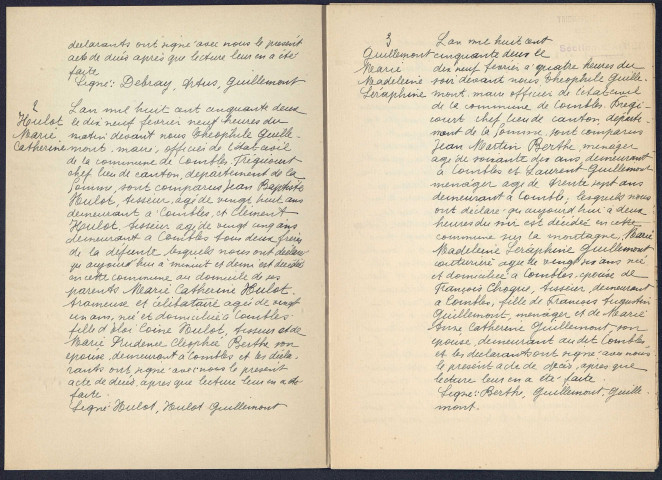 déclarants ont signé avec nous le présent
acte de décès après que lecture leur en a été
faite
Signé: Debray, Guillemont
2
Houlot
Marie
Catherine
L'an mil huit cent cinquante deux
le dix neuf février neuf heures du
matin devant nous Théophile Guille-
mont, maire, officier de l'état civil
de la commune de Combles, Frégicourt
chef lieu de canton, département de la
Somme, sont comparus Jean Baptiste
Hulot, tisseur, agé de vingt huit ans
demeurant à Combles, et Clément
Hulot, tisseur agé de vingt cinq ans
demeurant à Combles tous deux frères
de la défunte, lesquels nous ont déclaré
qu'aujourd'hui à minuit et demi est décédée
en cette commune au domicile de ses
parents Marie Catherine Hulot
trameuse et célibataire agée de vingt
un ans, née et domiciliée à Combles
fille d'Eloi Hulot, tisseur et de
Marie Prudence Cléophée Berthe son
épouse, demeurant à Combles et les décla-
rants ont signé avec nous le présent
acte de décès, après que lecture leur en a été
faite.
Signé: Hulot, Hulot Guillemont
3
Guillemont
Marie
Madeleine
Séraphine
L'an mil huit cent
cinquante deux le
dix neuf février à quatre heures du
soir devant nous Théophile Guille-
mont, maire officier de l'état civil
de la commune de Combles Frégi-
court chef lieu de canton, départe-
ment de la Somme, sont comparus
Jean Martin Berthe, ménager
agé de soixante dix ans demeurant
à Combles et Laurent Guillemont
ménager agé de trente sept ans
demeurant à Combles, lesquels nous
ont déclaré qu'aujourd'hui à deux
heures du soir est décédée en cette
commune sur la montagne, Marie
Madeleine Séraphine Guillemont
couturière agée de vingt six ans née
et domiciliée à Combles, épouse de
François Choque, tisseur, demeurant
à Combles, fille de François Augustin
Guillemont, ménager et de Marie
Anne Catherine Guillemont, son
épouse, demeurant au dit Combles
et les déclarants ont signé avec nous
le présent acte de décès, après que
lecture leur en a été faite.
Signé: Berthe, Guillemont, Guille-
mont.